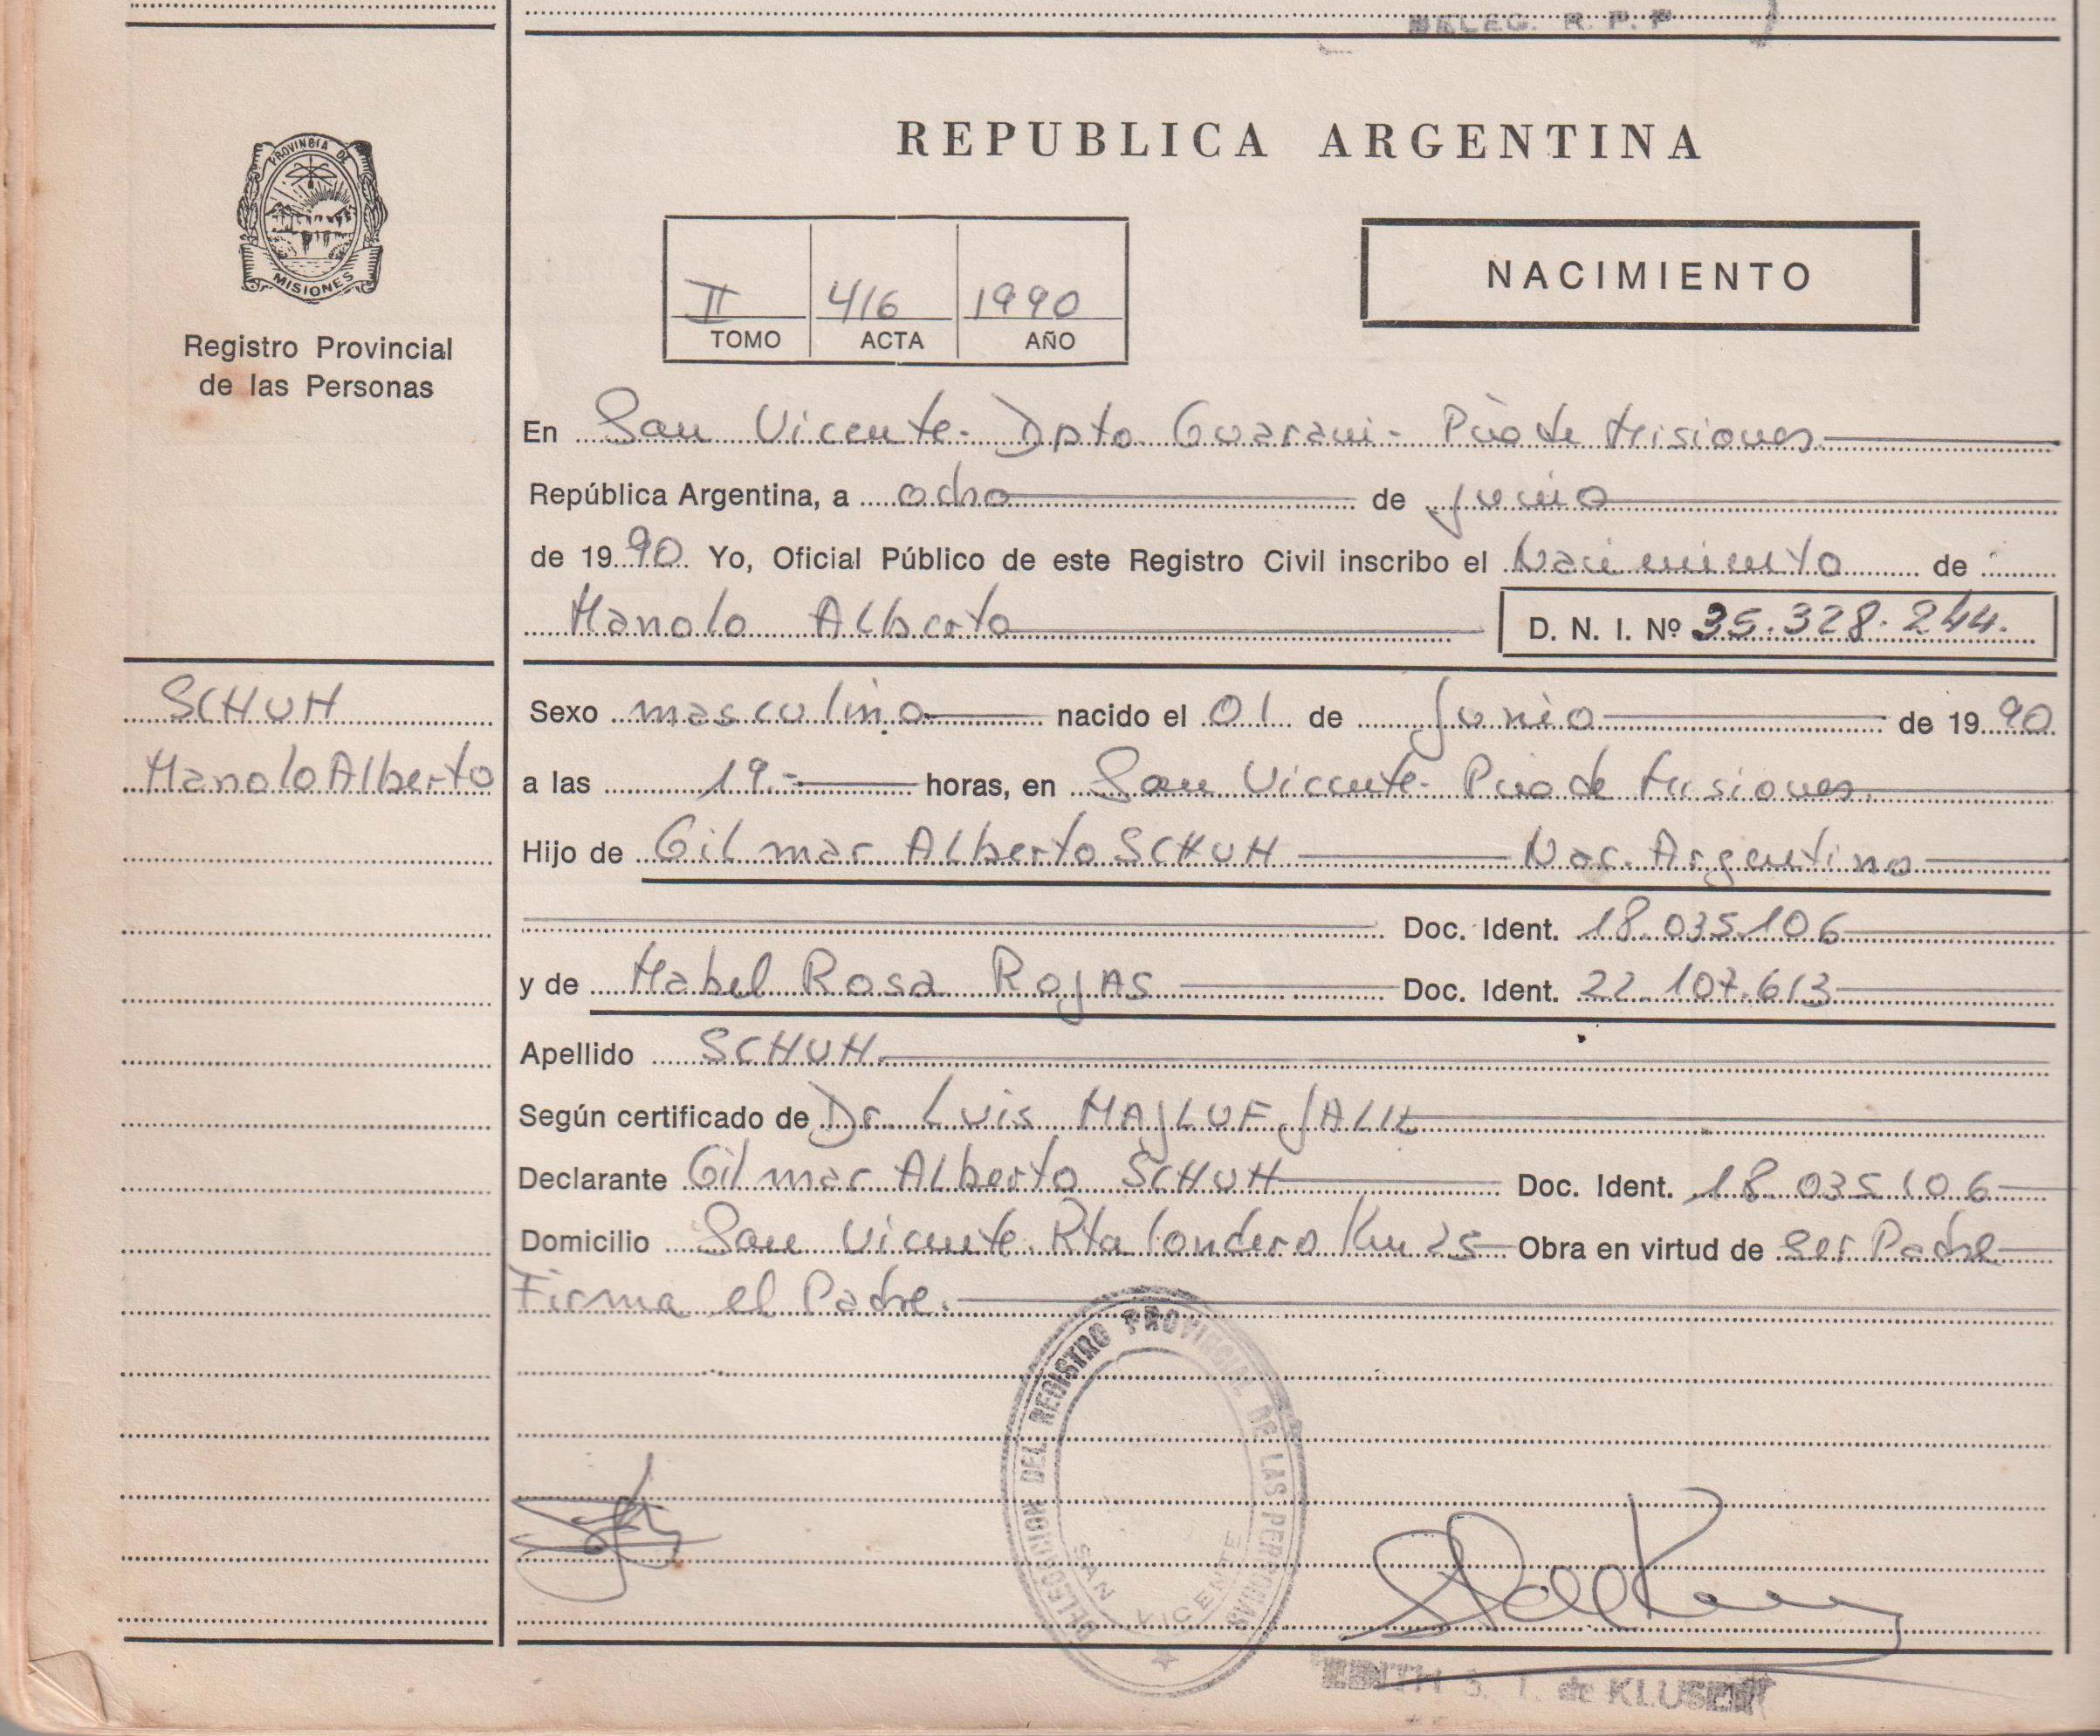 DELEG. R. P. P
REPUBLICA ARGENTINA
PROVINCIA DE
MISIONES
Registro Provincial
de las Personas
II 416 1990
TOMO ACTA AÑO
NACIMIENTO
En San Vicente - Dpto Guarani - Pcia de Misiones
República Argentina, a ocho de junio
de 1990 Yo, Oficial Público de este Registro Civil inscribo el Nacimiento de
Manolo Alberto D. N. I. Nº 35.328.244.
SCHUH
Manolo Alberto
Sexo masculino nacido el 01 de Junio de 1990
a las 19.- horas, en San Vicente - Pcia de Misiones.
Hijo de Gilmar Alberto SCHUH Nac. Argentino
Doc. Ident. 18.035.106
y de Mabel Rosa ROJAS Doc. Ident. 22.107.613
Apellido SCHUH.
Según certificado de Dr. Luis MAJLUF JALIL
Declarante Gilmar Alberto SCHUH Doc. Ident. 18.035106
Domicilio San Vicente. Rta Londero Km 25 Obra en virtud de ser Padre
Firma el Padre.
DELEGACION DEL REGISTRO PROVINCIAL DE LAS PERSONAS
SAN VICENTE
S. T. de KLUSENER